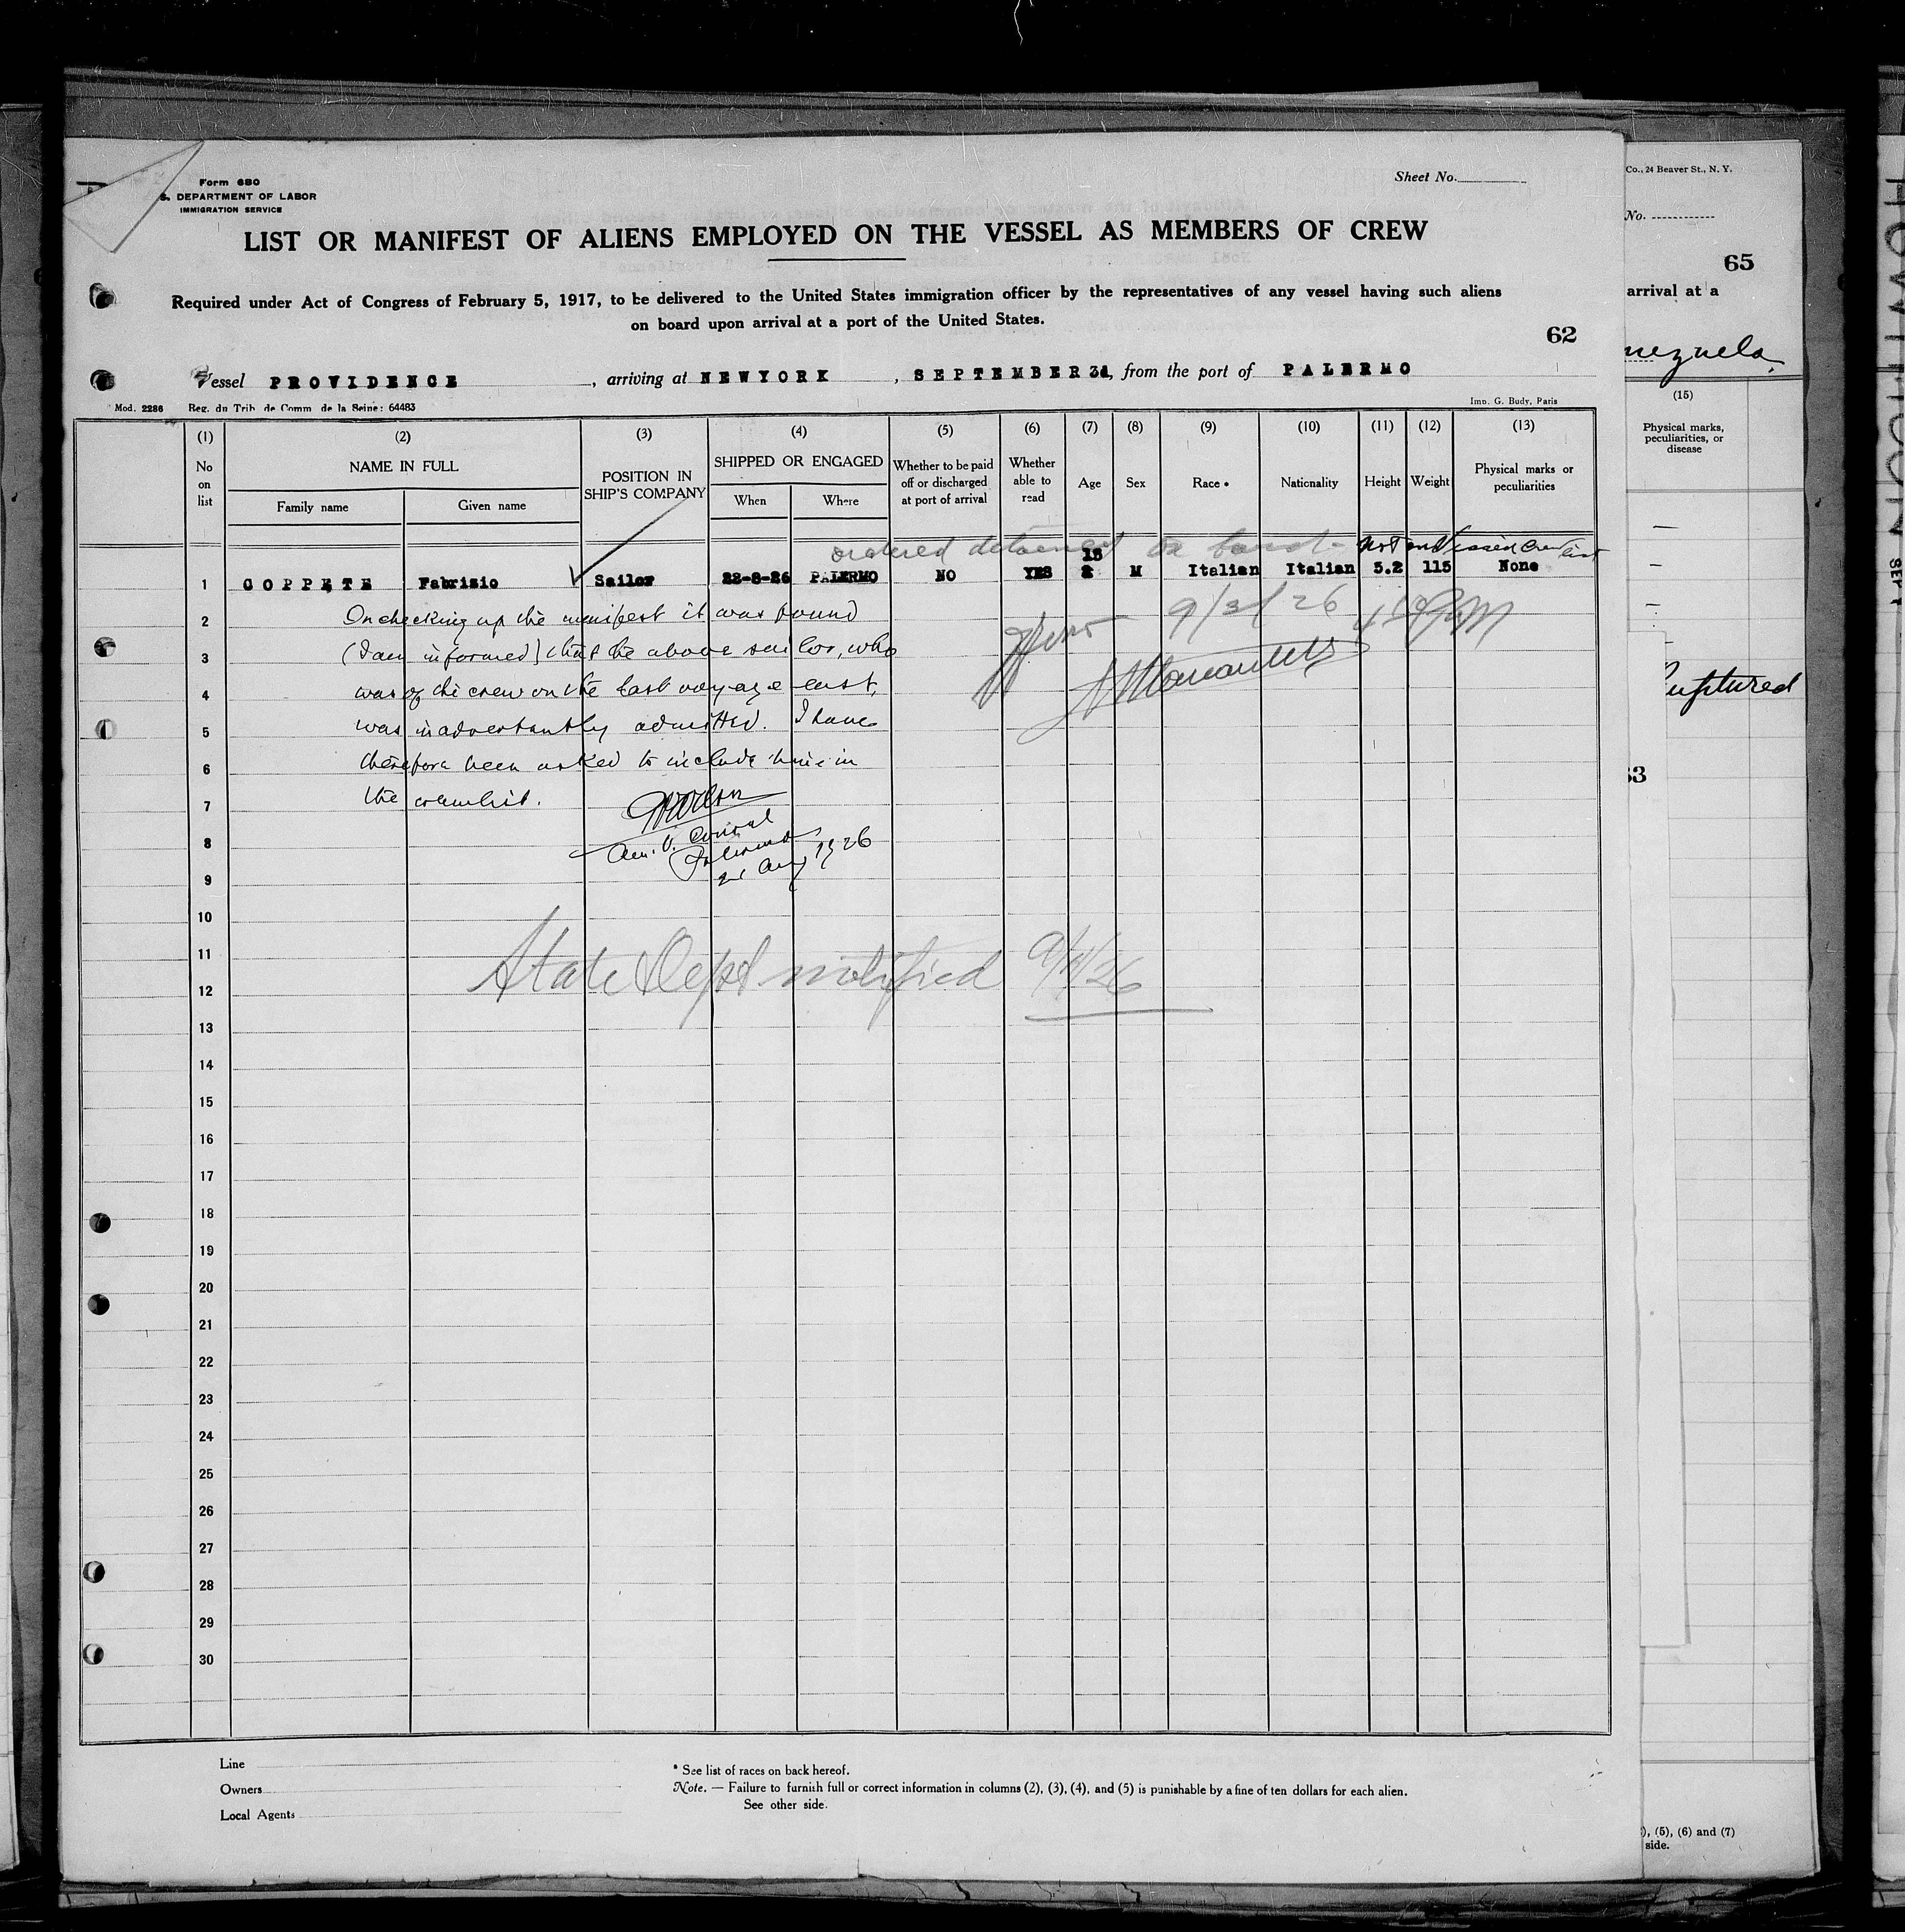 Form 680
S. DEPARTMENT OF LABOR
IMMIGRATION SERVICE
Sheet No.
LIST OR MANIFEST OF ALIENS EMPLOYED ON THE VESSEL AS MEMBERS OF CREW
Required under Act of Congress of February 5, 1917, to be delivered to the United States immigration officer by the representatives of any vessel having such aliens
on board upon arrival at a port of the United States.
62
Vessel PROVIDENCE, arriving at NEWYORK, SEPTEMBER, from the port of PALERMO
Mod. 2286 Reg. du Trib. de Comm. de la Seine: 64483 Imp. G. Budy, Paris
(1) (2) (3) (4) (5) (6) (7) (8) (9) (10) (11) (12) (13)
No on list NAME IN FULL Family name Given name POSITION IN SHIP'S COMPANY SHIPPED OR ENGAGED When Where Whether to be paid off or discharged at port of arrival Whether able to read Age Sex Race * Nationality Height Weight Physical marks or peculiarities
ordered detained on board - Not on Vissed Crew list
18
1 COPPETE Fabrizio Sailor 22-8-26 PALERMO NO YES M Italian Italian 5.2 115 None
2 On checking up the manifest it was found 9/3/26
3 (I am informed) that the above sailor, who
4 was of the crew on the last voyage east,
5 was inadvertantly admitted. I have
6 therefore been asked to include him in
7 the crewlist.
8 Am. V. Consul
Palermo
9 21 Aug 1926
10
11 State Dept notified
12
13
14
15
16
17
18
19
20
21
22
23
24
25
26
27
28
29
30
Line
Owners
Local Agents
* See list of races on back hereof.
Note. — Failure to furnish full or correct information in columns (2), (3), (4), and (5) is punishable by a fine of ten dollars for each alien.
See other side.
Co., 24 Beaver St., N. Y.
No.
65
arrival at a
(15)
Physical marks,
peculiarities, or
disease
33
(5), (6) and (7)
side.